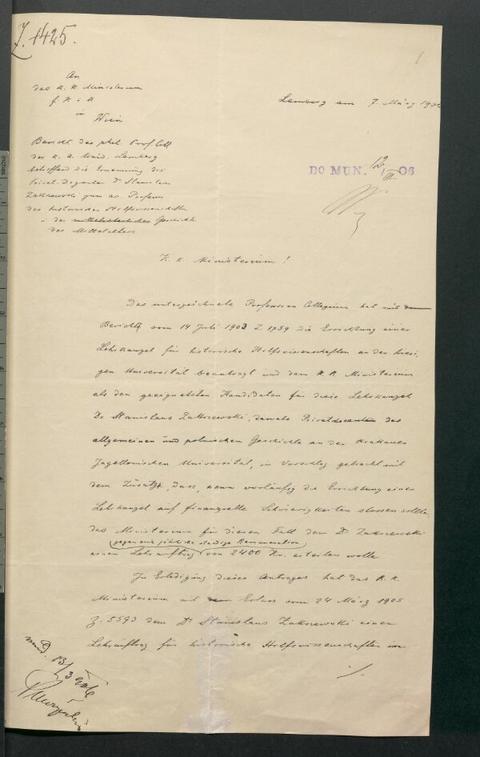 Z. 1425.
1
An
das k. k. Ministerium
f. K. u. U
in Wien
Lemberg am 7. März 190
Bericht des phil. Prof. Coll.
der k. k. Univ. Lemberg
betreffend die Ernennung des
Privat-Dozenten Dr Stanislaus
Zakrzewski zum ao. Professor
der historischen Hilfswissenschaften
u. der mittelalterlichen Geschichte
des Mittelalters
DO MUN. 12/III 06
K. k. Ministerium!
Das unterzeichnete Professoren Collegium hat mit dem
Berichte vom 14 Juli 1903 Z. 1739 die Errichtung einer
Lehrkanzel für historische Hilfswissenschaften an der hiesi-
gen Universität beantragt und dem k. k. Ministerium
als den geeignetsten Kandidaten für diese Lehrkanzel
Dr Stanislaus Zakrzewski, damals Privatdocenten der
allgemeinen und polnischen Geschichte an der Krakauer
Jagellonischen Universität, in Vorschlag gebracht mit
dem Zusatze, dass, wenn vorläufig die Errichtung einer
Lehrkanzel auf finanzielle Schwierigkeiten stossen sollte,
das Ministerium für diesen Fall dem Dr Zakrzewski
gegen eine jährliche Remuneration
einen Lehrauftrag von 2400 Kr. erteilen wolle
In Erledigung dieses Antrages hat das k. k.
Ministerium mit Erlass vom 24 März 1905
Z. 5593 dem Dr Stanislaus Zakrzewski einen
Lehrauftrag für historische Hilfswissenschaften im
./.
13/3 906